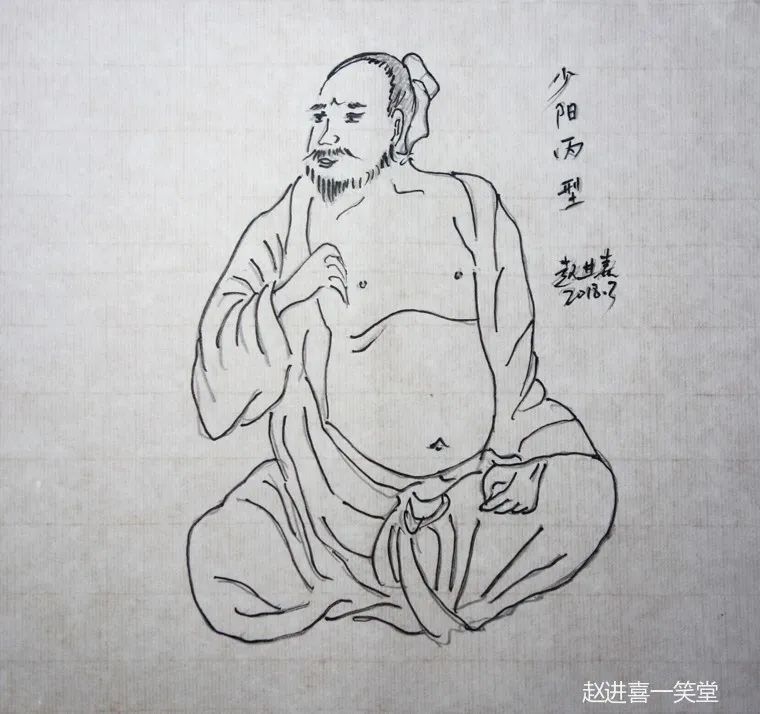 少阳丙型
赵进喜
2018.3
赵进喜一笑堂